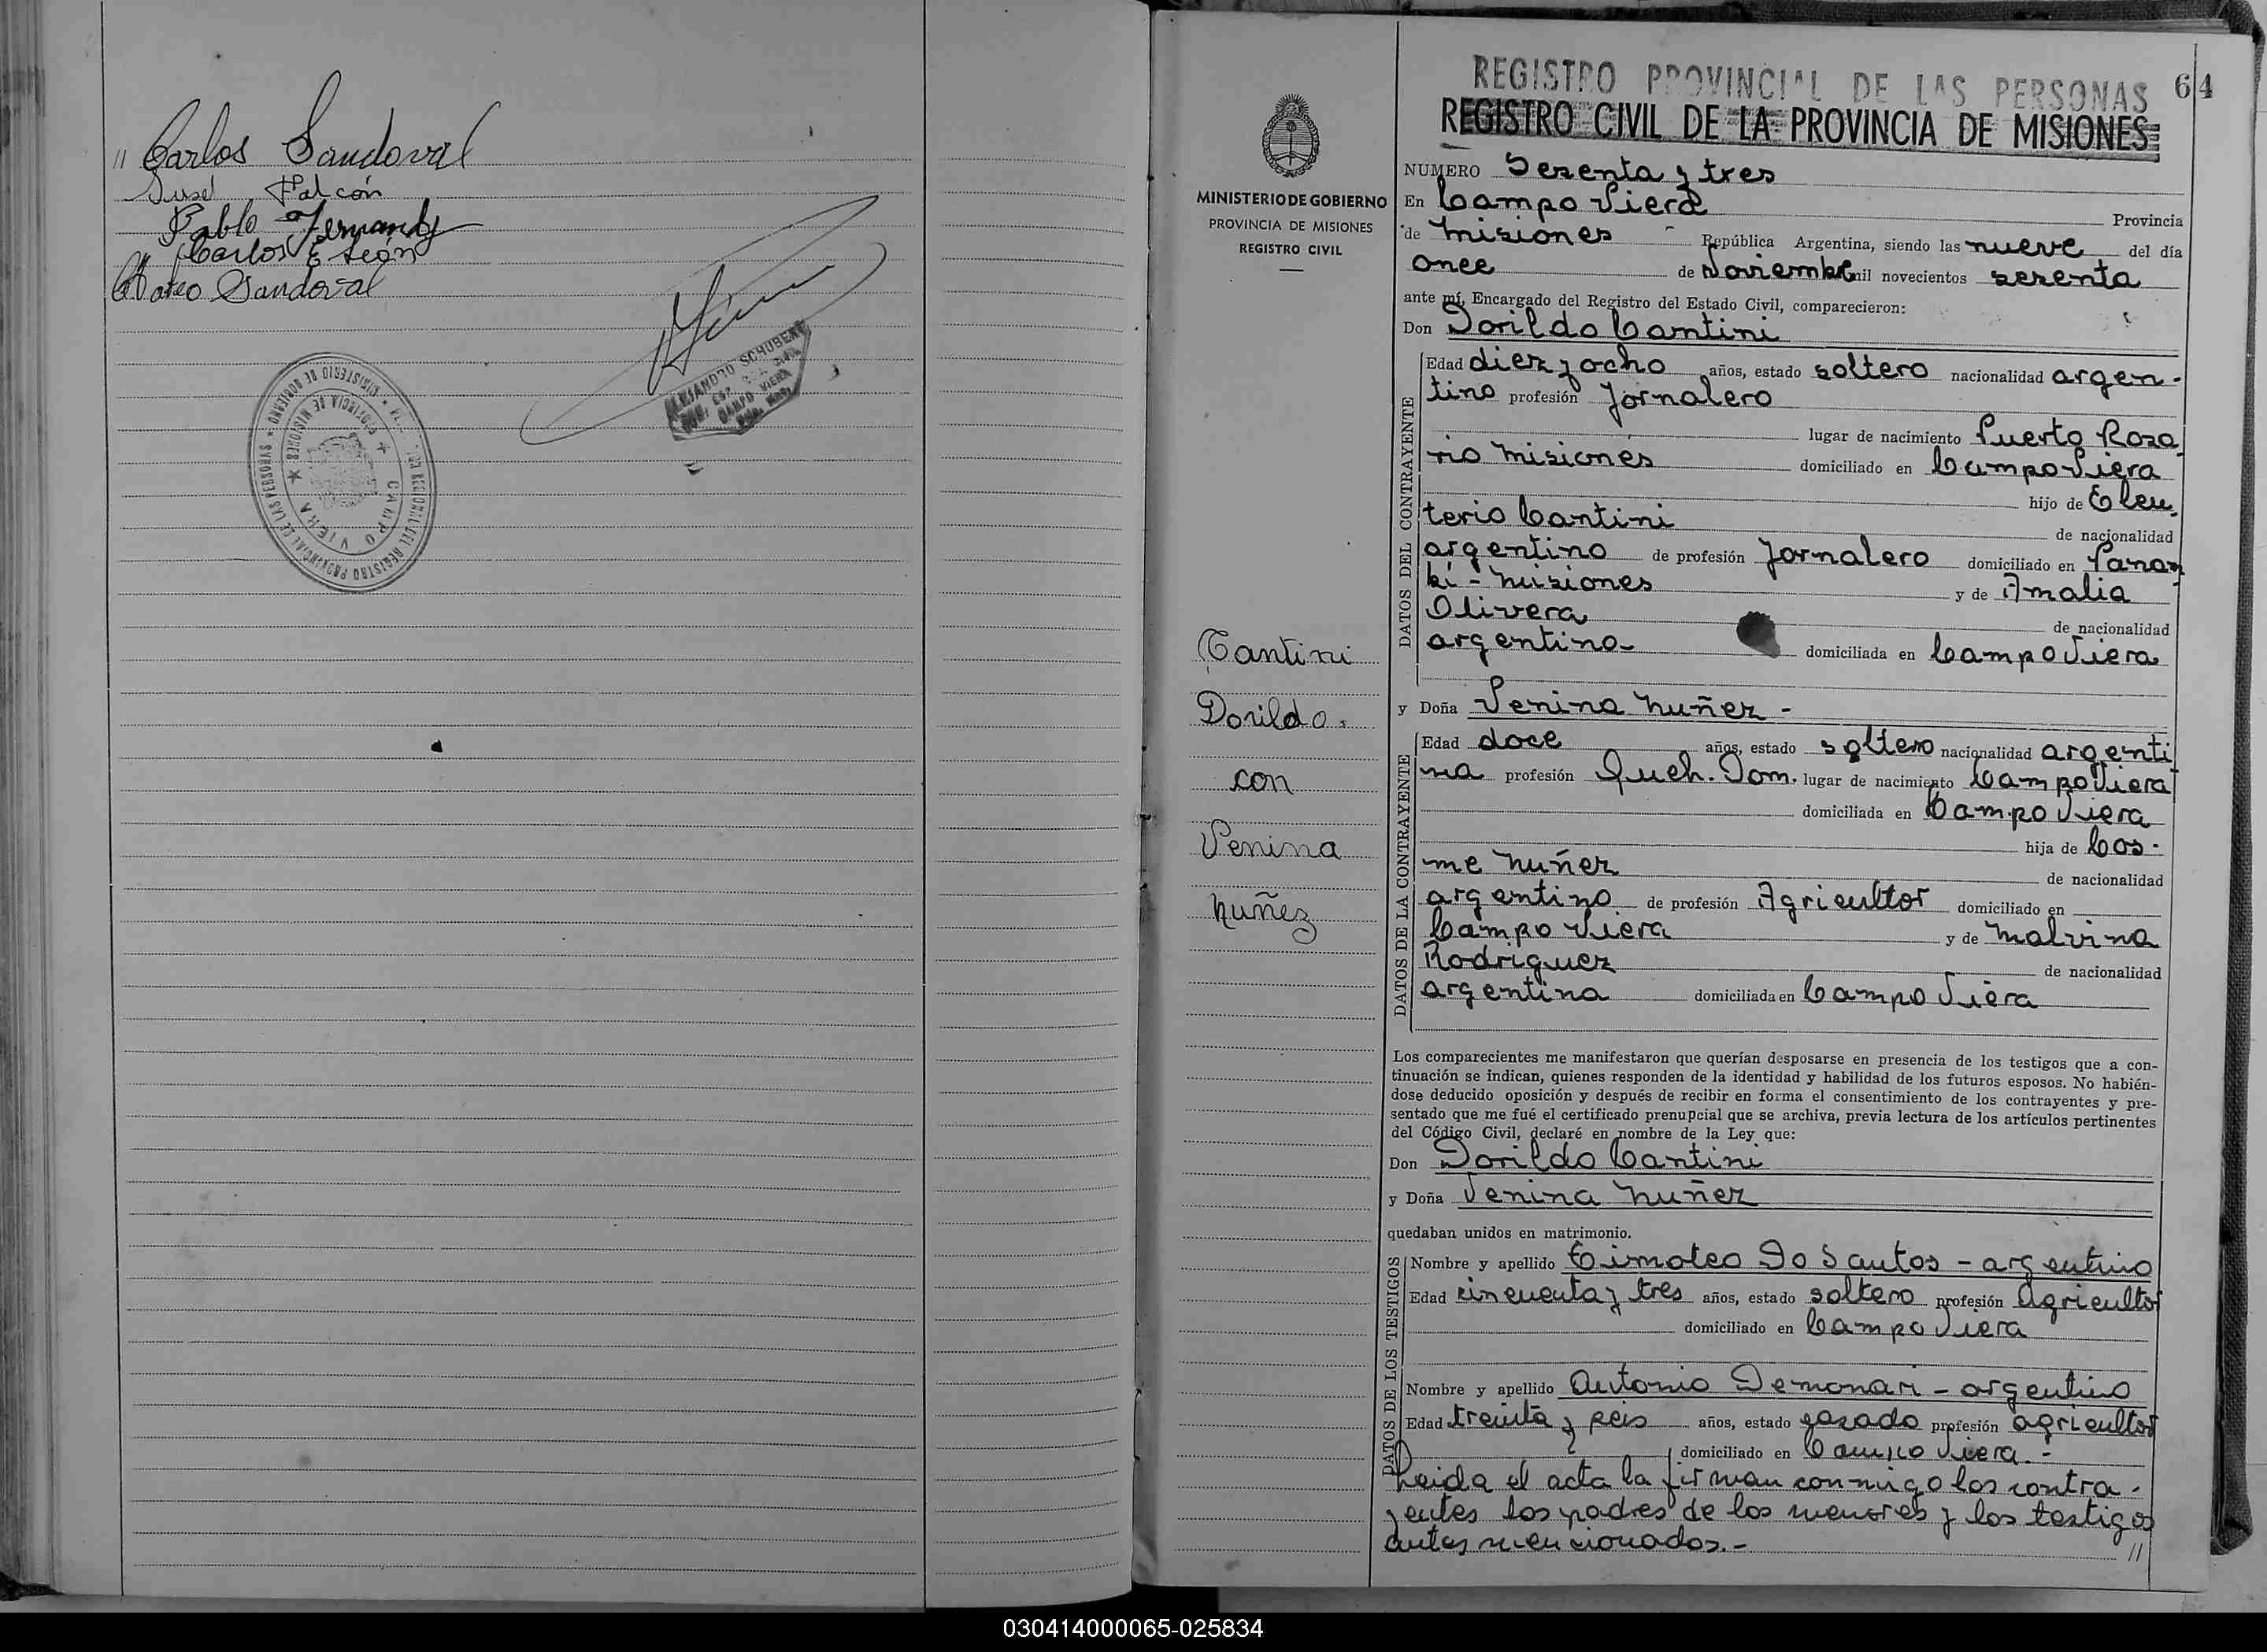 " Carlos Sandoval
José Falcón
Pablo Fernandz
Carlos E León
Mateo Sandoval
ALEJANDRO SCHUBERT
CAMPO VIERA
REGISTRO PROVINCIAL DE LAS PERSONAS
PROVINCIA DE MISIONES
CAMPO VIERA
MINISTERIO DE GOBIERNO
PROVINCIA DE MISIONES
REGISTRO CIVIL
Cantini
Dorildo.
con
Venina
Nuñez
REGISTRO PROVINCIAL DE LAS PERSONAS 64
REGISTRO CIVIL DE LA PROVINCIA DE MISIONES
NUMERO Sesenta y tres
En Campo Viera Provincia
de Misiones República Argentina, siendo las nueve del día
once de Noviembre mil novecientos sesenta
ante mí, Encargado del Registro del Estado Civil, comparecieron:
Don Dorildo Cantini
DATOS DEL CONTRAYENTE
Edad diez y ocho años, estado soltero nacionalidad argen-
tino profesión Jornalero
lugar de nacimiento Puerto Rosa
rio Misiones domiciliado en Campo Viera
hijo de Eleu-
terio Cantini de nacionalidad
argentino de profesión Jornalero domiciliado en Panam
bí - Misiones y de Amalia
Olivera de nacionalidad
argentina domiciliada en Campo Viera
y Doña Venina Nuñez -
DATOS DE LA CONTRAYENTE
Edad doce años, estado soltero nacionalidad argenti
na profesión Queh. Dom. lugar de nacimiento Campo Viera
domiciliada en Campo Viera
hija de Cos-
me Nuñez de nacionalidad
argentino de profesión Agricultor domiciliado en
Campo Viera y de Malvina
Rodriguez de nacionalidad
argentina domiciliada en Campo Viera
Los comparecientes me manifestaron que querían desposarse en presencia de los testigos que a con-
tinuación se indican, quienes responden de la identidad y habilidad de los futuros esposos. No habién-
dose deducido oposición y después de recibir en forma el consentimiento de los contrayentes y pre-
sentado que me fué el certificado prenupcial que se archiva, previa lectura de los artículos pertinentes
del Código Civil, declaré en nombre de la Ley que:
Don Dorildo Cantini
y Doña Venina Nuñez
quedaban unidos en matrimonio.
DATOS DE LOS TESTIGOS
Nombre y apellido Timoteo Do Santos - argentino
Edad cincuenta y tres años, estado soltero profesión Agricultor
domiciliado en Campo Viera
Nombre y apellido Antonio Demonari - argentino
Edad treinta y seis años, estado casado profesión agricultor
domiciliado en Campo Viera.-
Leida el acta la firman conmigo los contra-
yentes los padres de los menores y los testigos
antes mencionados.- "
030414000065-025834